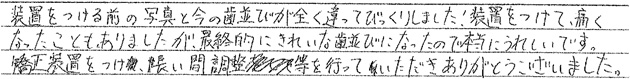 装置をつける前の写真と今の歯並びが全く違ってびっくりしました！装置をつけて、痛く
なったこともありましたが、最終的にきれいな歯並びになったので本当にうれしいです。
矯正装置をつけ、長い間調整等を行っていただきありがとうございました。